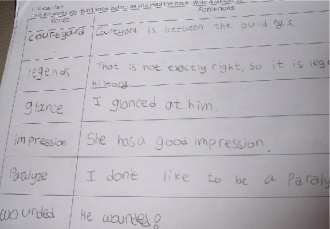 Words Sentences
courtyard courtyard is between the buildings.
legends That is not exactly right, so it is leg
history
glance I glanced at him.
impression She has a good impression.
Paralyze I dont like to be a Paraly
wounded He wounded?